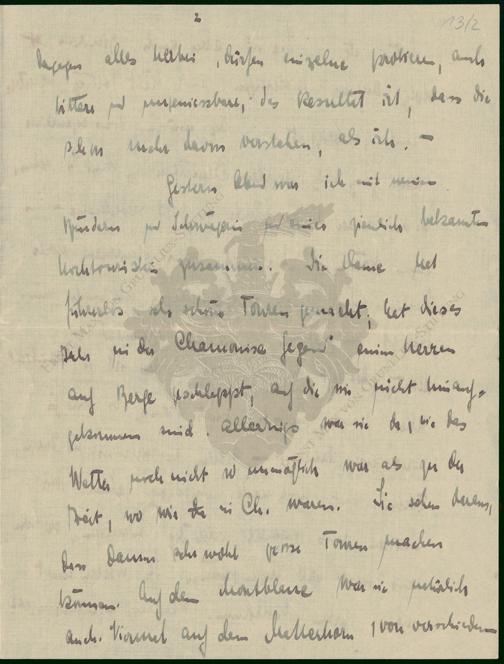 2
13/2
dagegen alles herbei, dürfen einzelne probieren, auch
bittere und ungeniessbare, das Resultat ist, dass die
schon mehr davon verstehen, als ich. –
Gestern Abend war ich mit meinen
Brüdern und Schwägerin und einer ziemlich bekannten
Hochtouristin zusammen. Die Dame hat
führerlos sehr schöne Touren gemacht, hat dieses
Jahr in der Chamonixer Gegend einen Herren
auf Berge geschleppt, auf die wir nicht hinauf-
gekommen sind. Allerdings war sie da, wie das
Wetter noch nicht so unmöglich war als zu der
Zeit, wo wir da in Ch. waren. Sie sehen daraus,
dass Damen sehr wohl grosse Touren machen
können. Auf dem Montblanc war sie natürlich
auch. Viermal auf dem Matterhorn, von verschiedenen